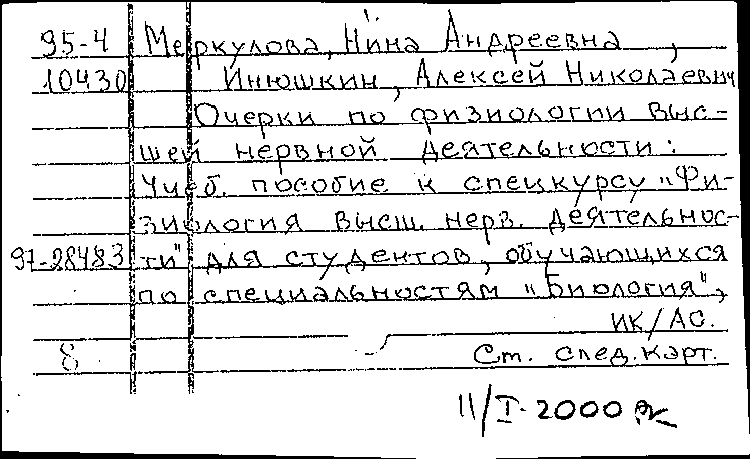 95-4 Меркулова, Нина Андреевна,
10430 Инюшкин, Алексей Николаевич
Очерки по физиологии выс-
шей нервной деятельности:
Учеб. пособие к спецкурсу "Фи-
зиология высш. нерв. деятельнос-
97-28483 ти" для студентов, обучающихся
по специальностям "Биология",
ИК/АС.
8 См. след. карт.
11/I-2000